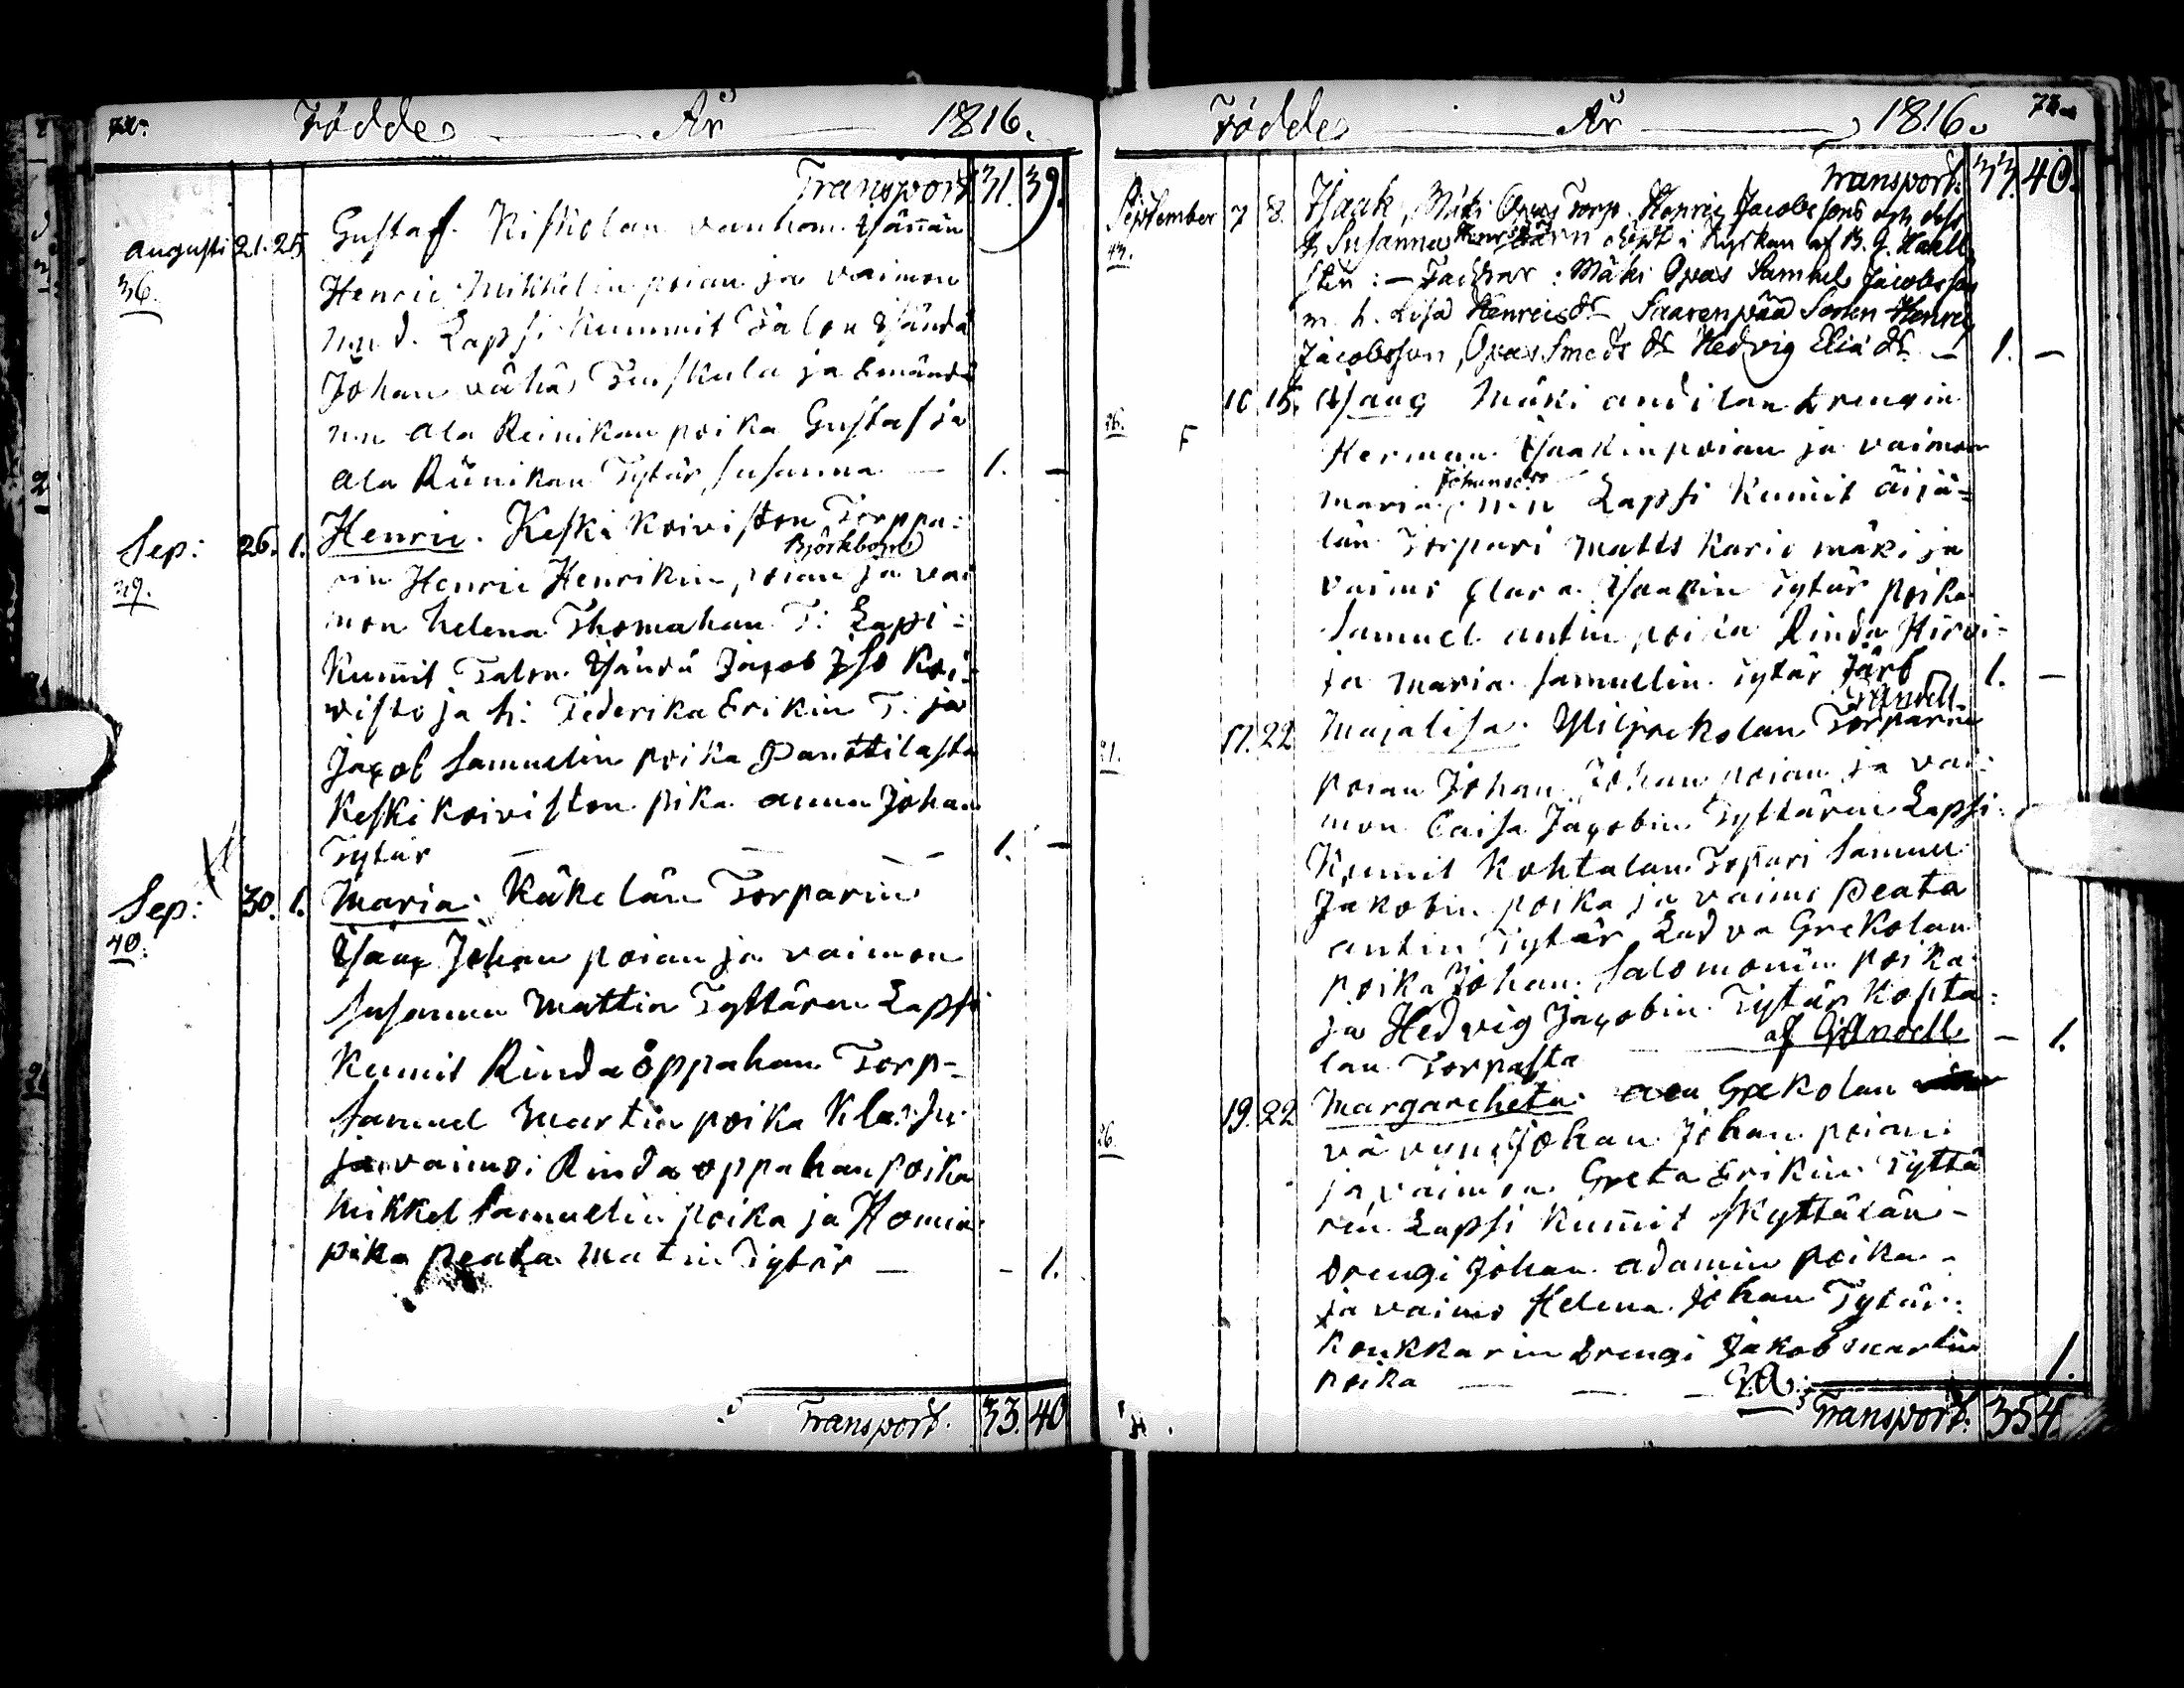 Födde År 1816.
Transport 31. 39.
Augusti 21. 25 Gustaf. Kiskolan vanhan Isännän
36. Henric Mikkelin poian ja vaimon
n.n d. Lapsi. Kummit Talon Isändä
Johan vähä Tuiskula ja Emändä
n.n Ala Reinikan poika Gustaf ja
Ala Riinikan Tytär Susanna — 1. —
Sep: 26. 1. Henric. Keski Koiviston Torppa:
Björkbom
rin Henric Henrikin poian ja vai
39. mon Helena Thomahan T: Lapsi:
Kummit Talon Isändä Jacob Iso Koi:
visto ja h: Federika Erikin T: ja
Jacob Samuelin poika Panttilasta
Keski Koiviston pika anna Johan
Tytär — — — 1. —
Sep: 30. 1. Maria. Käkelän Torparin
40. Isaac Johan poian ja vaimon
Susanna Mattin Tyttären Lapsi
Kumit Rinda öppahan Torp-
Samuel Martin poika
ja vaimoi Rinda oppahan poika
Mikkel Samuelin poika ja
pika Peata Matin Tytär — - 1.
Transport. 33. 40
Födde År 1816. 73
Transport. 33. 40.
September 7 8. Isaak, Mäki Opas Torp. Henric Jacobssons och dess
h. Susanna Henrics dr Barn döpt i Kyrkan af B. G. Haell
43. sten: — Faddrar: Mäki Opas Samuel Jacobsson
m. h. Lisa Henrics dr Saarenpää Sonen Henric
Jacobsson, Opas Smeds dr Hedvig Eliä dr — 1. —
10 15. Isaac Mäki andilan drengin
F Herman Isaakin poian ja vaimon
Johansdr
Maria n.n Lapsi Kumit äijä=
län Torpari Matts Kario mäki ja
vaimo Clara Isaakin Tytär poika
Samuel antin poika Rinda Hirvi-
ja Maria Samuelin Tytär Järf 1. —
17. 22 Majalisa. Yliprekolan Torparin
21. poian Johan Johan poian ja vai:
mon Caisa Jacobin Tyttären Lapsi:
Kumit Kohtalan Torpari Samuel
Jakobin poika ja vaimo Peata
antin Tytär Ladva Grekolan
poika Johan Salomonin poika
ja Hedvig Jacobin Tytär Kopta:
lan Torpasta — - 1.
19. 22 Margareheta: Grekolan
26. vävyn Johan Johan poian
ja vaimon Greta Erikin Tyttä
ren Lapsi Kummit Skyttälän -
Drengi Johan adamin poika -
ja vaimo Helena Johan Tytär:
Koukkarin drengi Jakob Martin
poika — — — 1.
Transport. 35 4